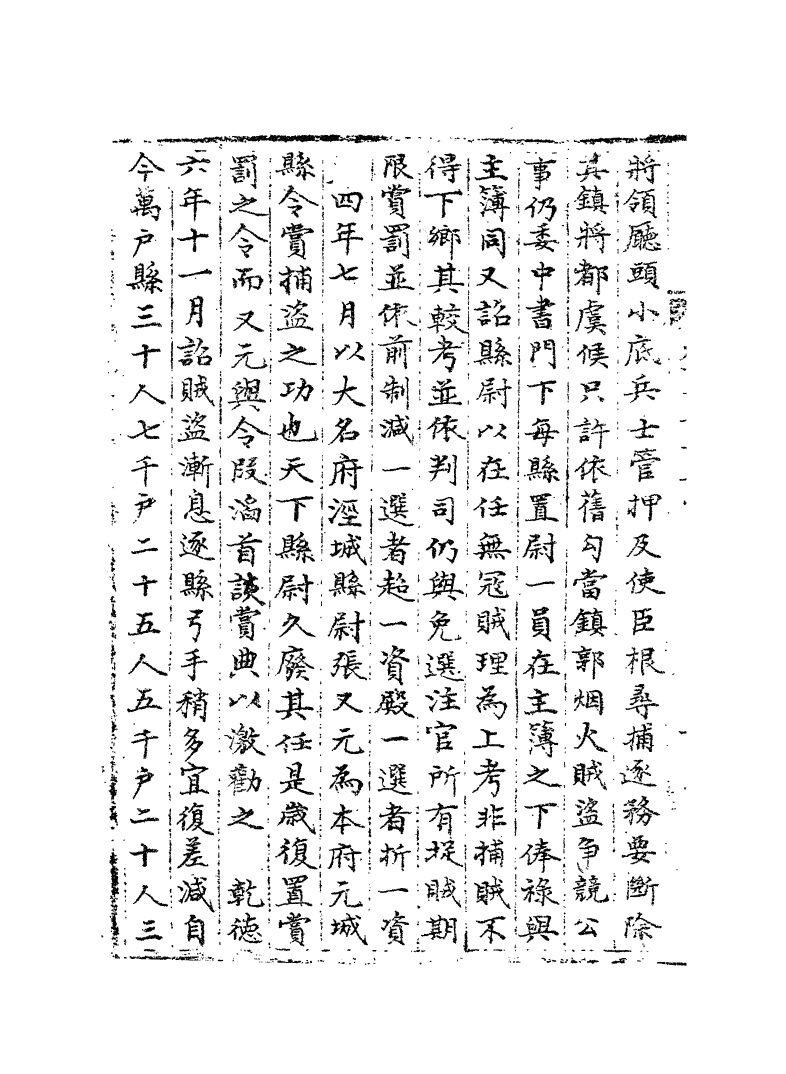 將領廳頭小底兵士管押及使臣根尋捕逐務要斷除
其鎮將都虞候只許依舊勾當鎮郭烟火賊盜爭競公
事仍委中書門下每縣置尉一員在主簿之下俸祿與
主簿同又詔縣尉以在任無寇賊理為上考非捕賊不
得下鄉其較考並依判司仍與免選注官所有捉賊期
限賞罰並依前制減一選者超一資殿一選者折一資
四年七月以大名府涇城縣尉張又元為本府元城
縣令賞捕盜之功也天下縣尉久廢其任是歲復置賞
罰之令而又元與令段滔首該賞典以激勸之　乾德
六年十一月詔賊盜漸息逐縣弓手稍多宜復差減自
今萬戶縣三十人七千戶二十五人五千戶二十人三